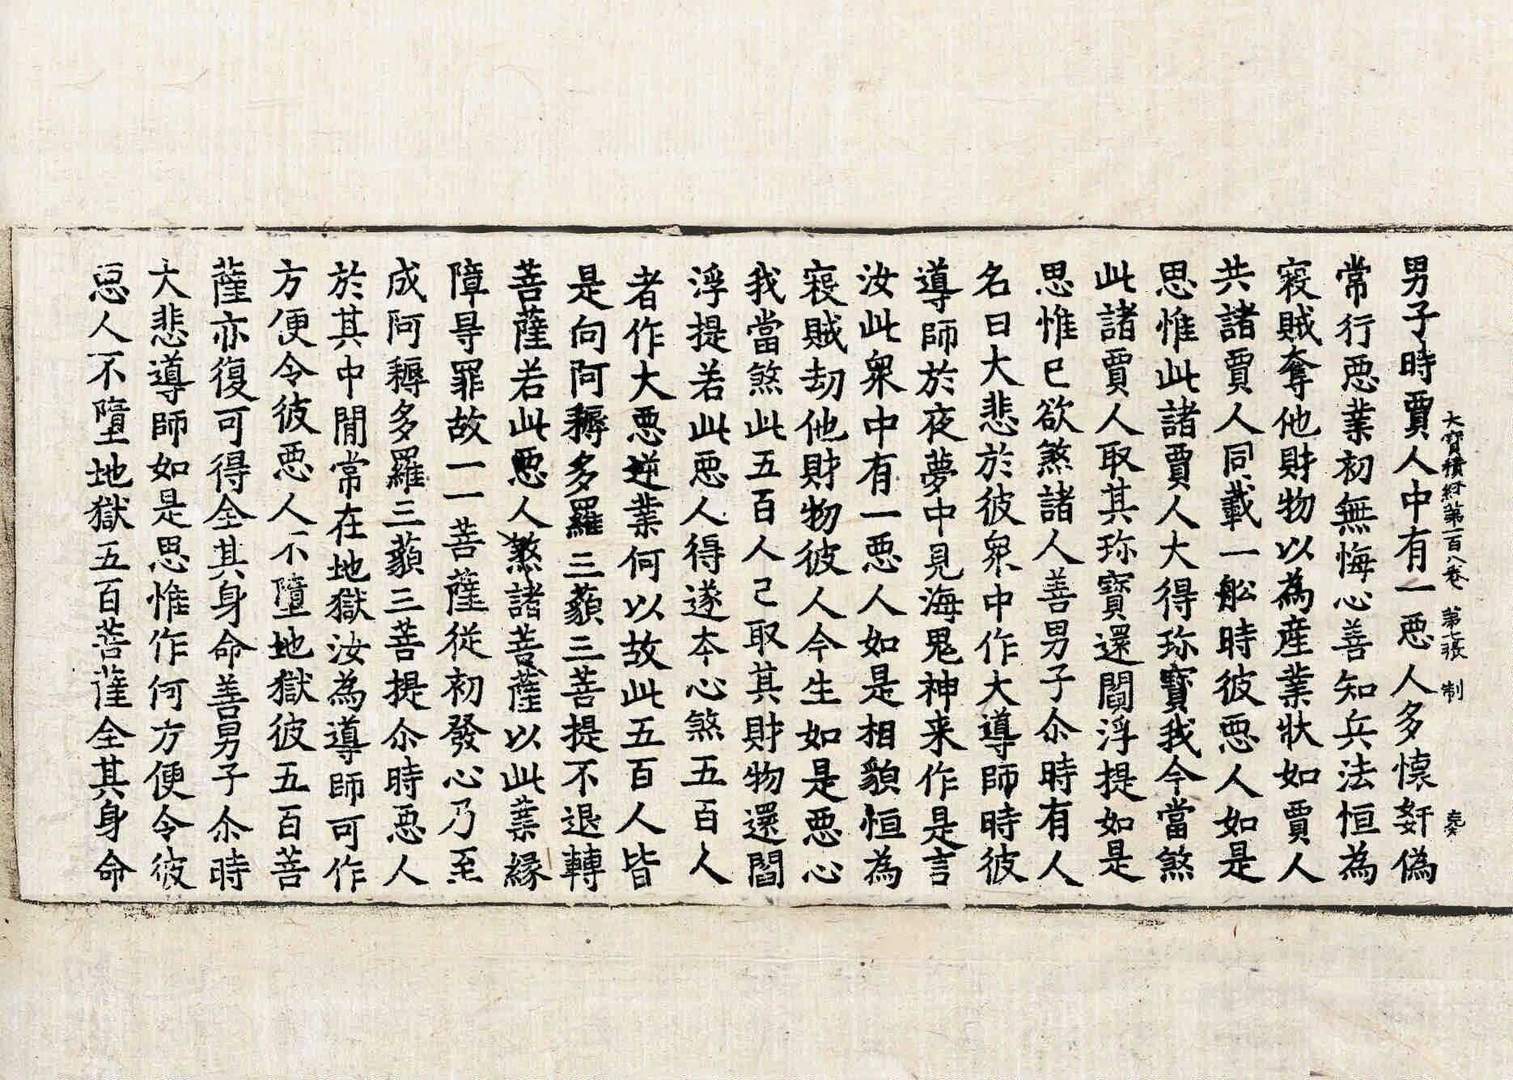 大寶積經第一百八卷 第七張 制
男子時賈人中有一惡人多懷姧偽
常行惡業初無悔心善知兵法恒為
㓂賊奪他財物以為産業狀如賈人
共諸賈人同載一舩時彼惡人如是
思惟此諸賈人大得珎寶我今當煞
此諸賈人取其珎寶還閻浮提如是
思惟已欲煞諸人善男子尒時有人
名曰大悲於彼衆中作大導師時彼
導師於夜夢中見海鬼神来作是言
汝此衆中有一惡人如是相貌恒為
㓂賊劫他財物彼人今生如是惡心
我當煞此五百人已取其財物還閻
浮提若此惡人得遂夲心煞五百人
者作大惡逆業何以故此五百人皆
是向阿耨多羅三藐三菩提不退轉
菩薩若此惡人煞諸菩薩以此業縁
障㝵罪故一一菩薩從初發心乃至
成阿耨多羅三藐三菩提尒時惡人
於其中閒常在地獄汝為導師可作
方便令彼惡人不墮地獄彼五百菩
薩亦復可得全其身命善男子尒時
大悲導師如是思惟作何方便令彼
惡人不墮地獄五百菩薩全其身命